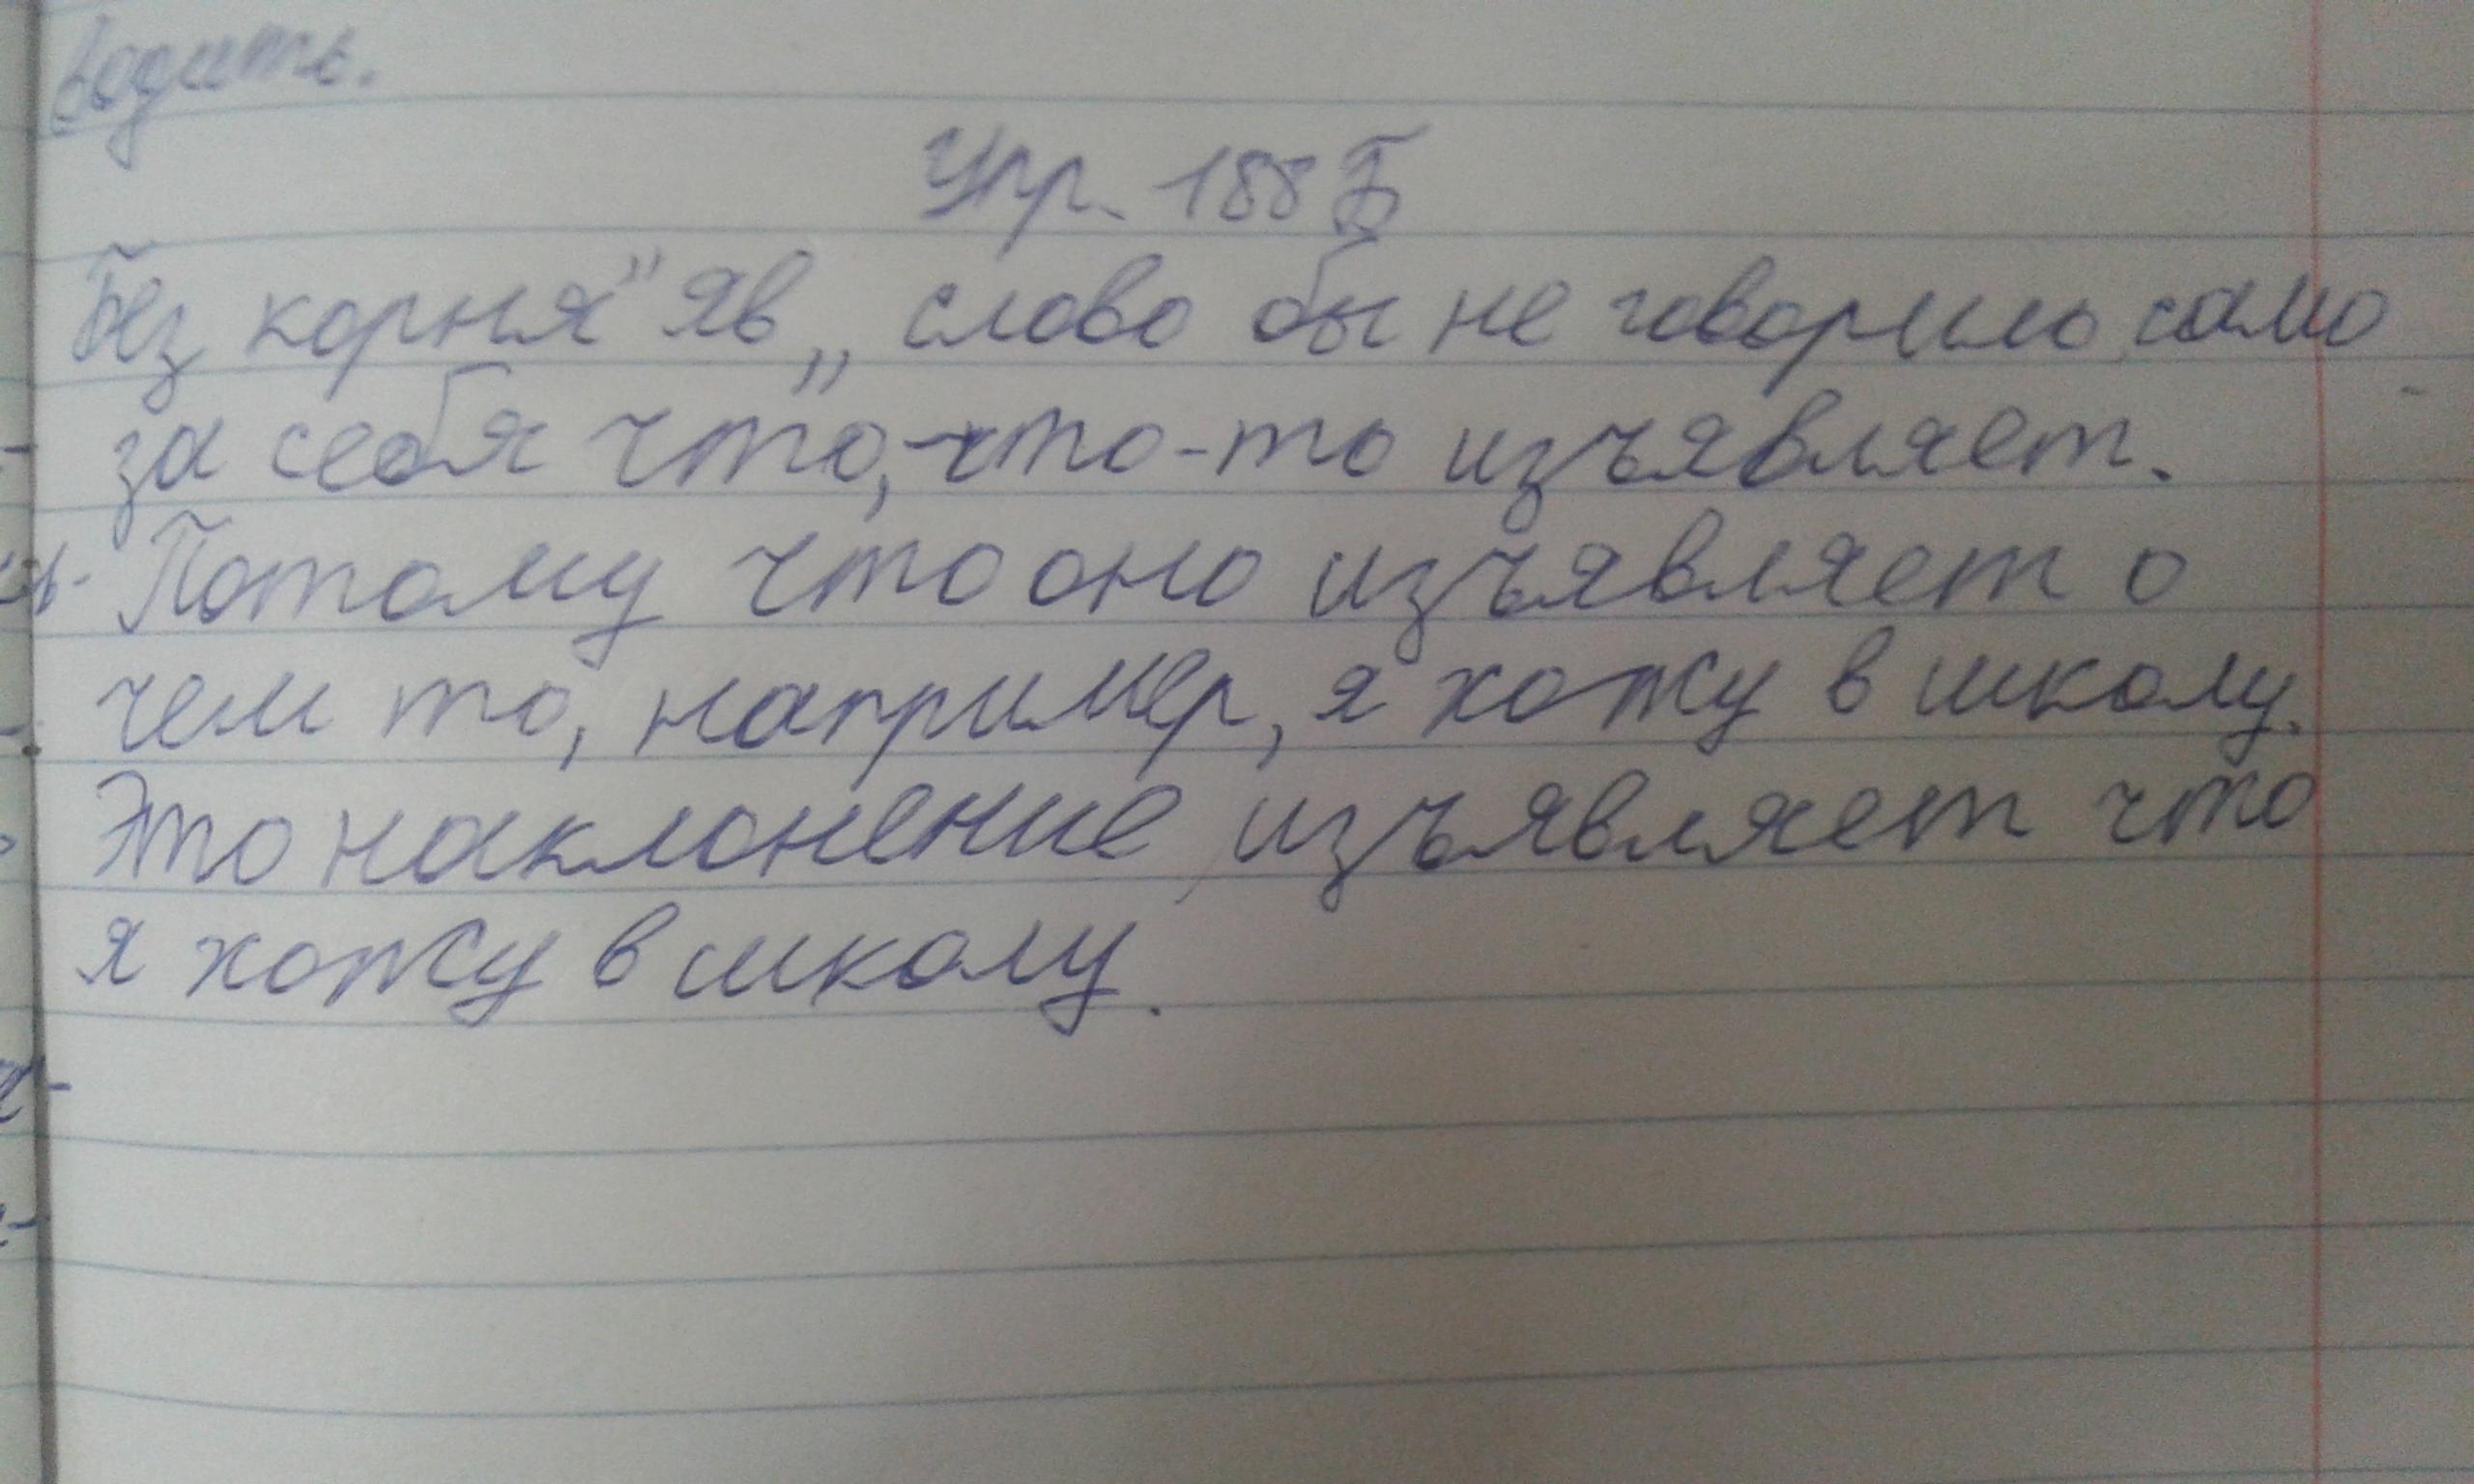 водить.
Упр. 188 Б
Без корня "яв„ слово бы не говорило само
за себя что,-что-то изъявляет.
Потому что оно изъявляет о
чем то, например, я хожу в школу.
Это наклонение изъявляет что
я хожу в школу.